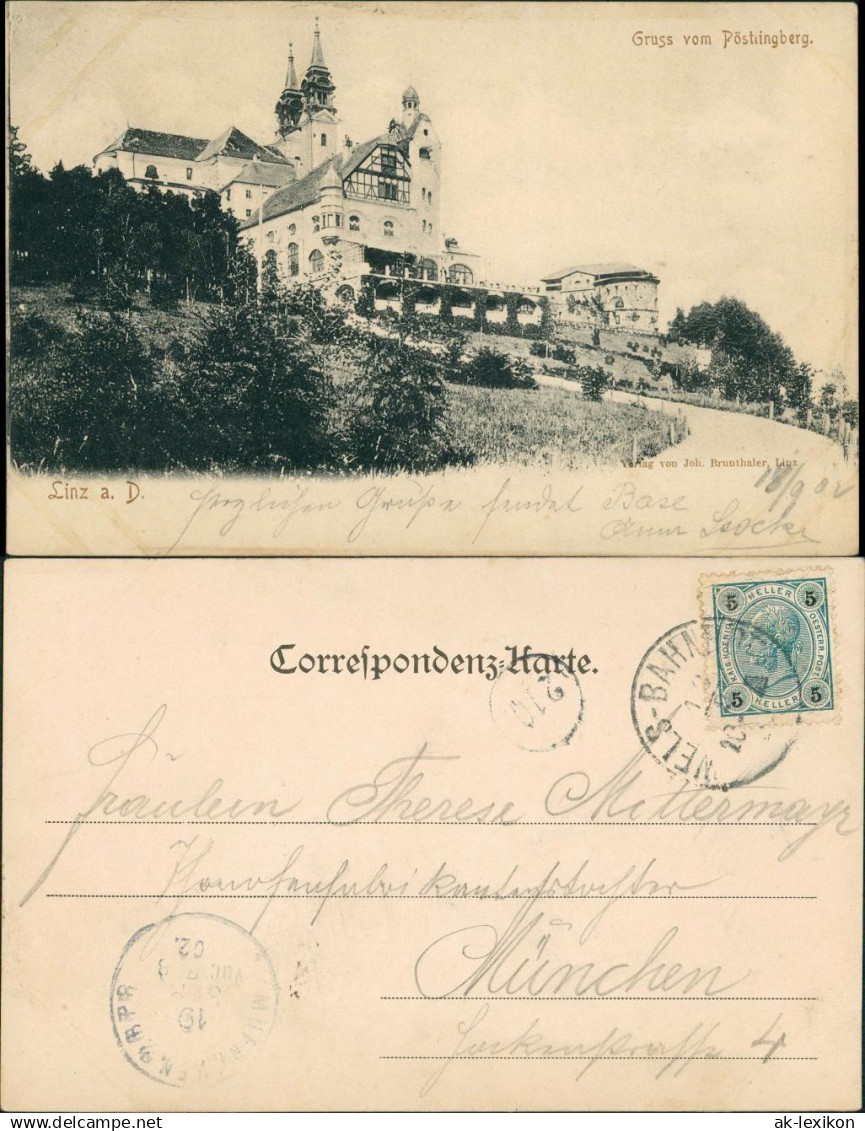 Gruss vom Pöstlingberg.
Verlag von Joh. Brunthaler, Linz
Linz a. D.
18/9 02
Herzlichen Grüße sendet Base
Correspondenz-Karte.
210
WELS-BAHNHOF
5 HELLER 5
KAIS. KOENIGL. OESTERR. POST
5 HELLER 5
Fräulein Therese Mittermayr
fabrikantenstochter
München
4
MUENCHEN 2 B.P.R
19
SEP
02.
ak-lexikon